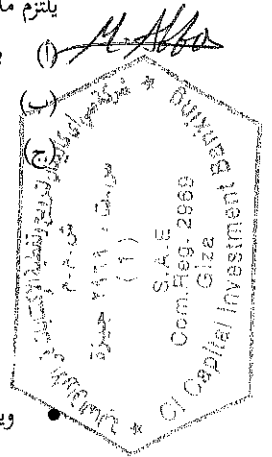 يلتزم ما
(أ)
M. Abba
(ب)
(ج)
ش.م.م
س.ت: ٢٩٦٩ جيزة
(1)
S.A.E
Com.Reg. 2969
Giza
CI Capital Investment Banking
وي